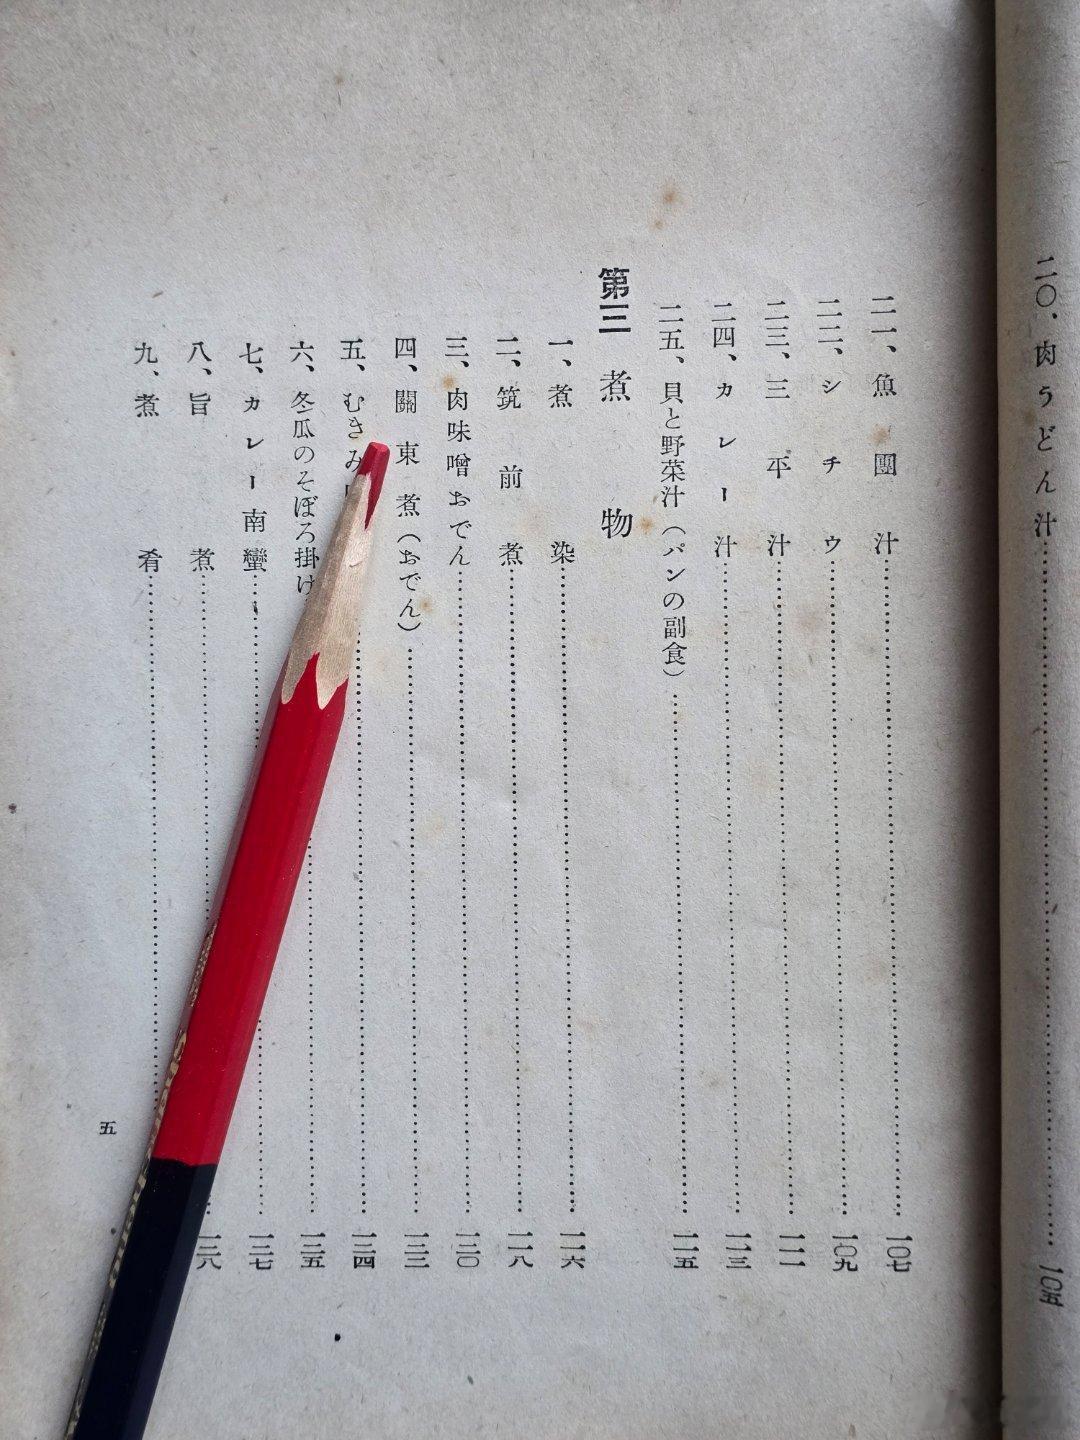 二〇、肉うどん汁…………一〇五
二一、魚團汁…………一〇七
二二、シチウ…………一〇九
二三、三平汁…………一一一
二四、カレー汁…………一一三
二五、貝と野菜汁(パンの副食)…………一一五
第三 煮物
一、煮染…………一一六
二、筑前煮…………一一八
三、肉味噌おでん…………一二〇
四、關東煮(おでん)…………一二二
五、むきみ…………一二四
六、冬瓜のそぼろ掛け…………一二五
七、カレー南蠻…………一二七
八、旨煮…………一二八
九、煮肴…………
五